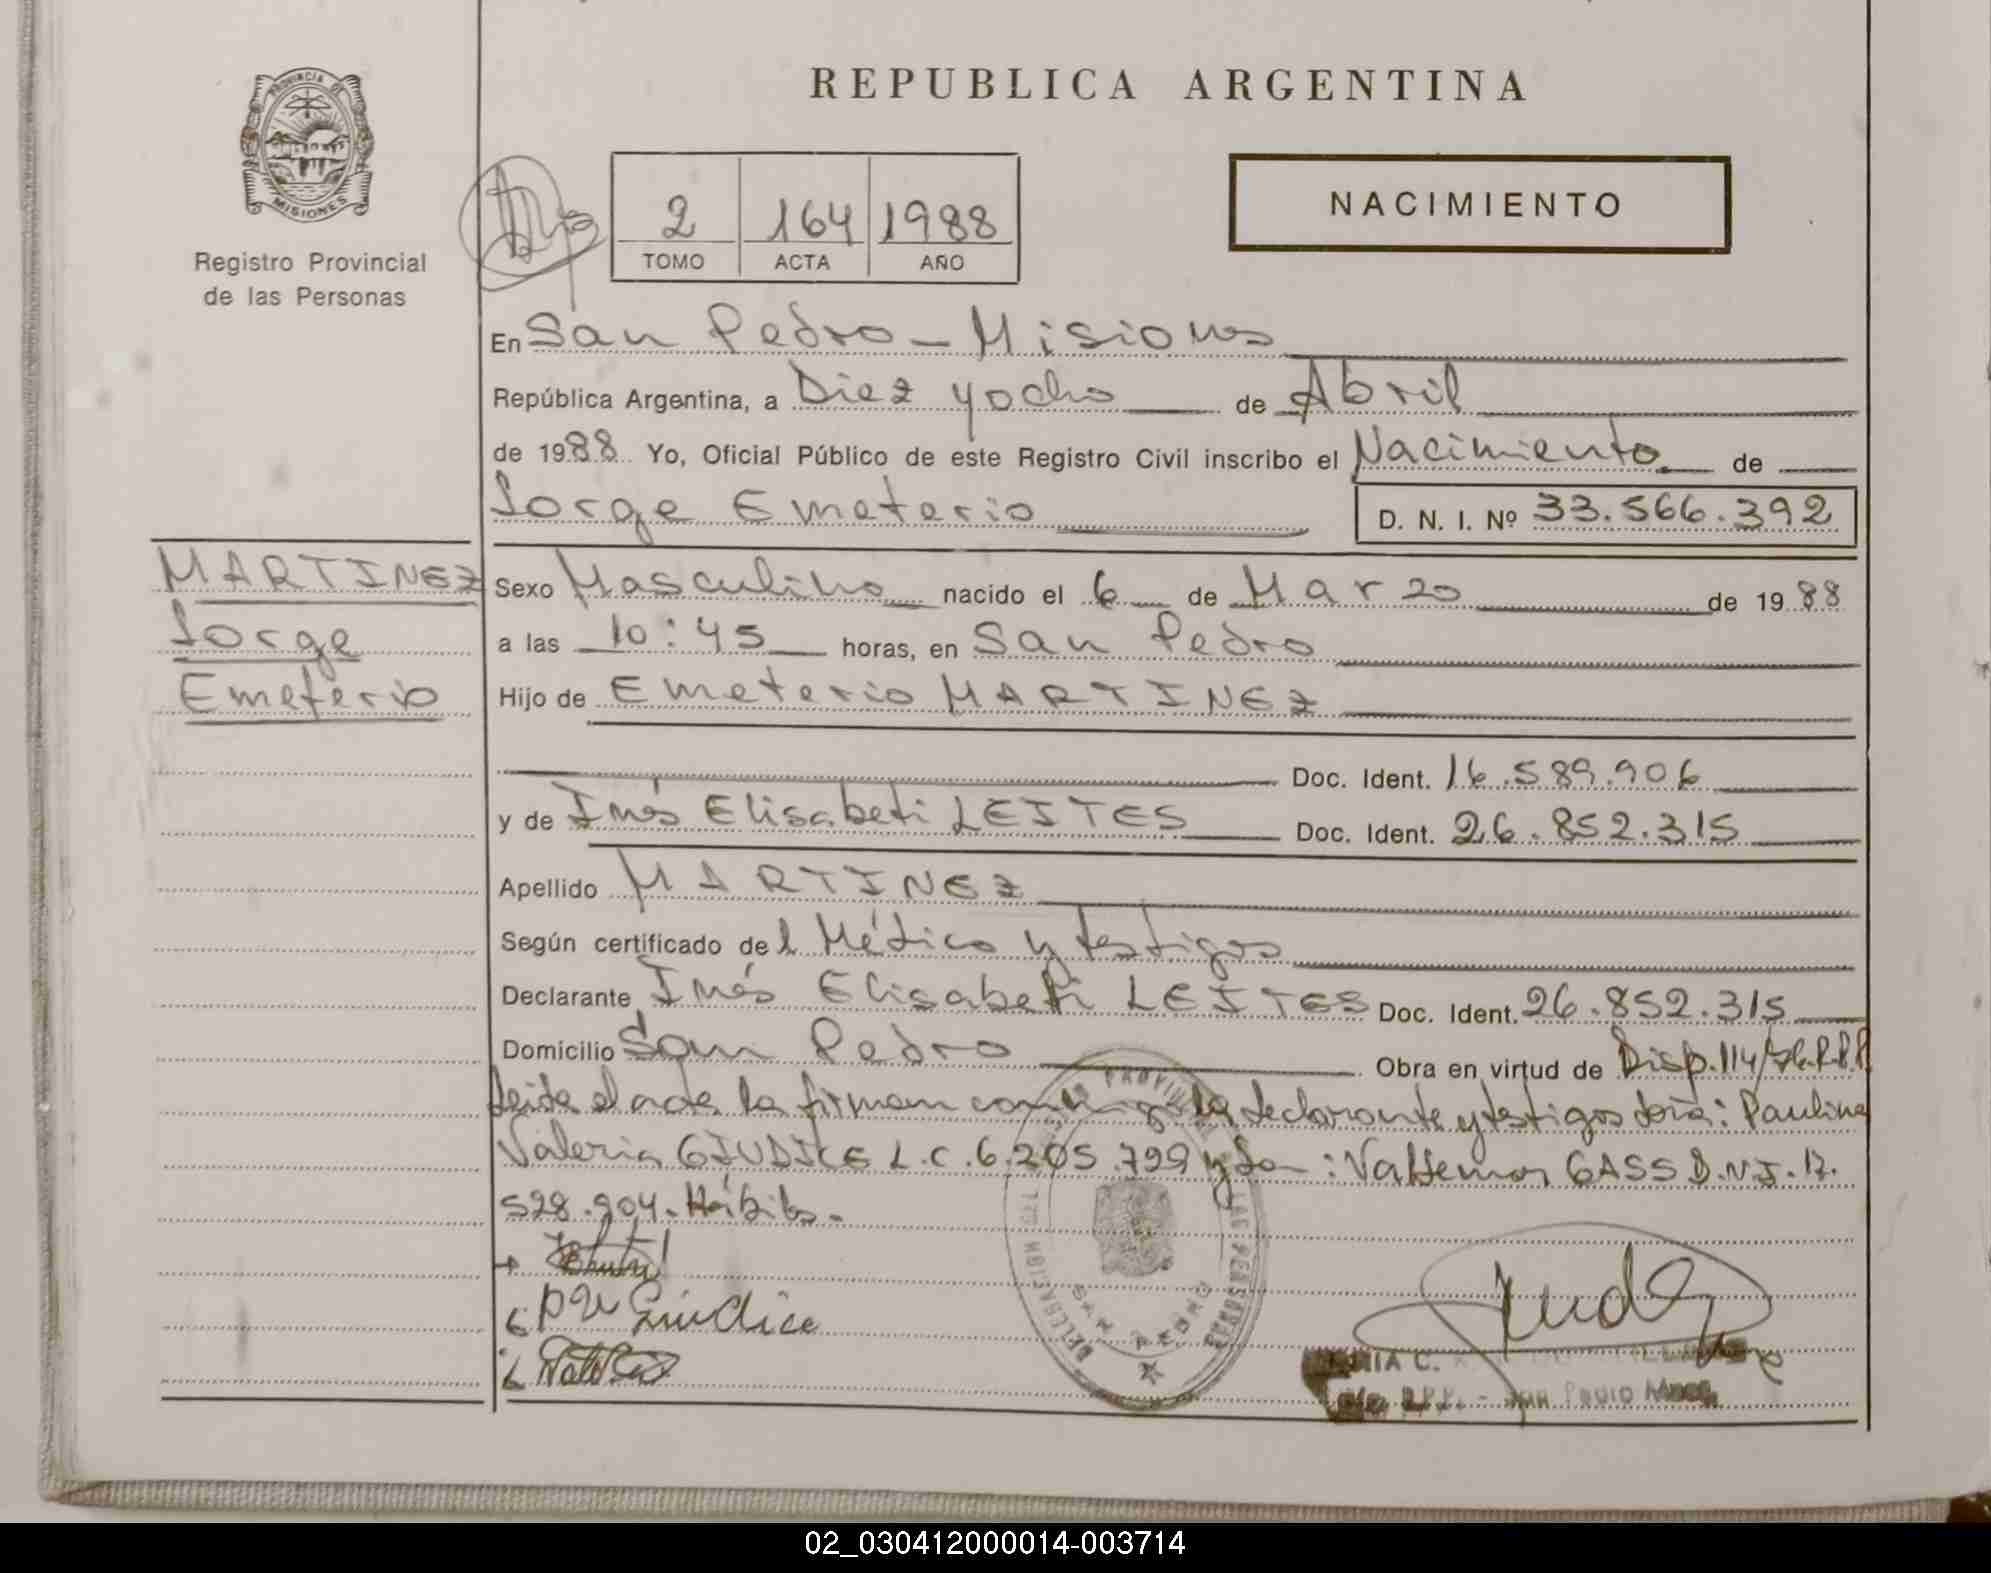 REPUBLICA ARGENTINA
PROVINCIA DE
MISIONES
Registro Provincial
de las Personas
2 164 1988
TOMO ACTA AÑO
NACIMIENTO
En San Pedro - Misiones
República Argentina, a Diez y ocho de Abril
de 1988 Yo, Oficial Público de este Registro Civil inscribo el Nacimiento de
Jorge Emeterio D. N. I. Nº 33.566.392
MARTINEZ
Jorge
Emeterio
Sexo Masculino nacido el 6 de Marzo de 1988
a las 10:45 horas, en San Pedro
Hijo de Emeterio MARTINEZ
Doc. Ident. 16.589.906
y de Inés Elisabeti LEITES Doc. Ident. 26.852.315
Apellido MARTINEZ
Según certificado del Médico y testigos
Declarante Inés Elisabeti LEITES Doc. Ident. 26.852.315
Domicilio San Pedro Obra en virtud de Disp. 114/
Leida el acta la firman conmigo la declarante y testigos doña: Paulina
Valeria GIUDICE L.C. 6.205.799 y don: Valdemar GASS D.N.I. 17.
528.904. Hábiles.
Giudice
DELEGACION SAN PEDRO
LAS PERSONAS
C.
San Pedro
02_030412000014-003714